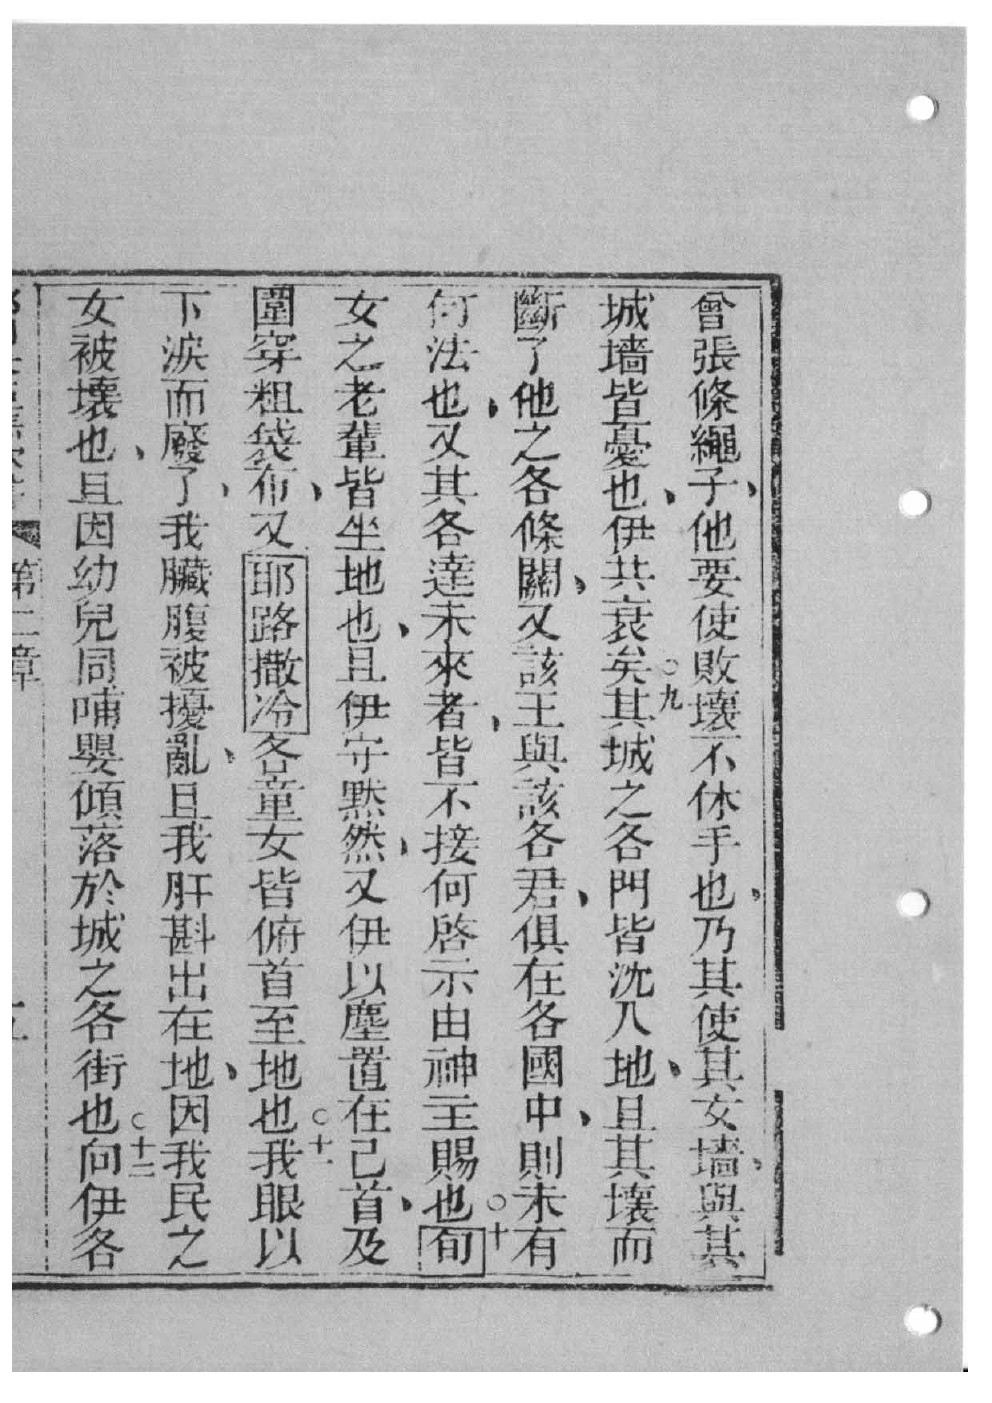 曾張條繩子、他要使敗壞不休手也、乃其使其女墻、與其
城墻皆憂也、伊共衰矣○九其城之各門皆沈入地、且其壞而
斷了他之各條關、又該王與該各君、俱在各國中、則未有
何法也、又其各達未來者、皆不接何啓示由神主賜也○十旬
女之老輩皆坐地也、且伊守黙然、又伊以塵置在己首、及
圍穿粗袋布、又耶路撒冷各童女皆俯首至地也○十一我眼以
下淚而廢了、我臟腹被擾亂、且我肝斟出在地、因我民之
女被壞也、且因幼兒同哺嬰傾落於城之各街也○十二向伊各
第二章